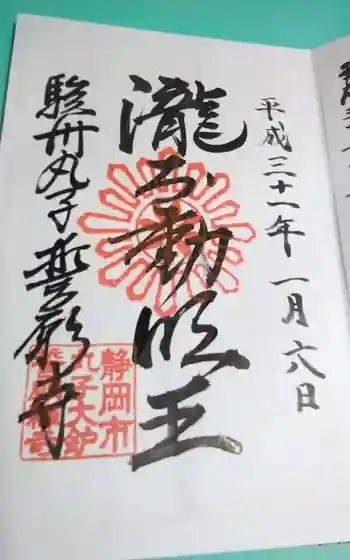 平成三十一年一月六日
瀧不動明王
駿州丸子誓願寺
静岡市
丸子大鈩
誓願寺